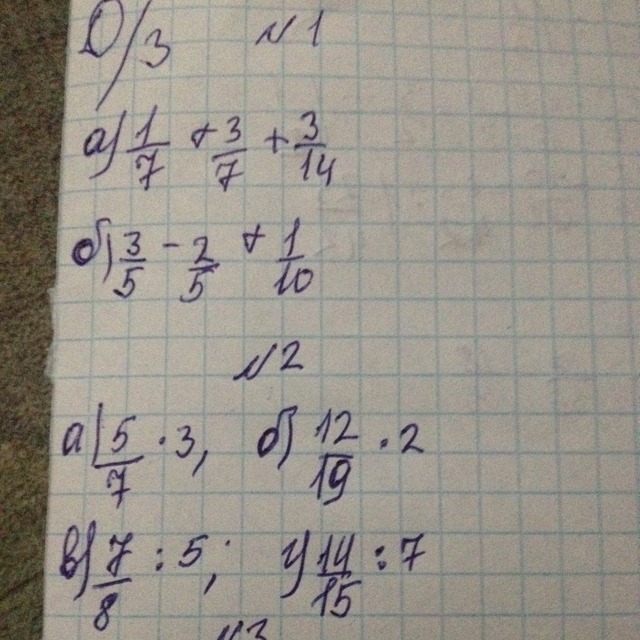 D/3 №1
а) 1/7 + 3/7 + 3/14
б) 3/5 - 2/5 + 1/10
№2
а) 5/7 · 3, б) 12/19 · 2
в) 7/8 : 5; г) 14/15 : 7
№3